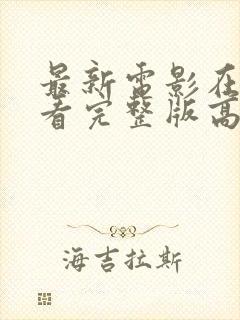 最新电影在
看完整版高
海吉拉斯